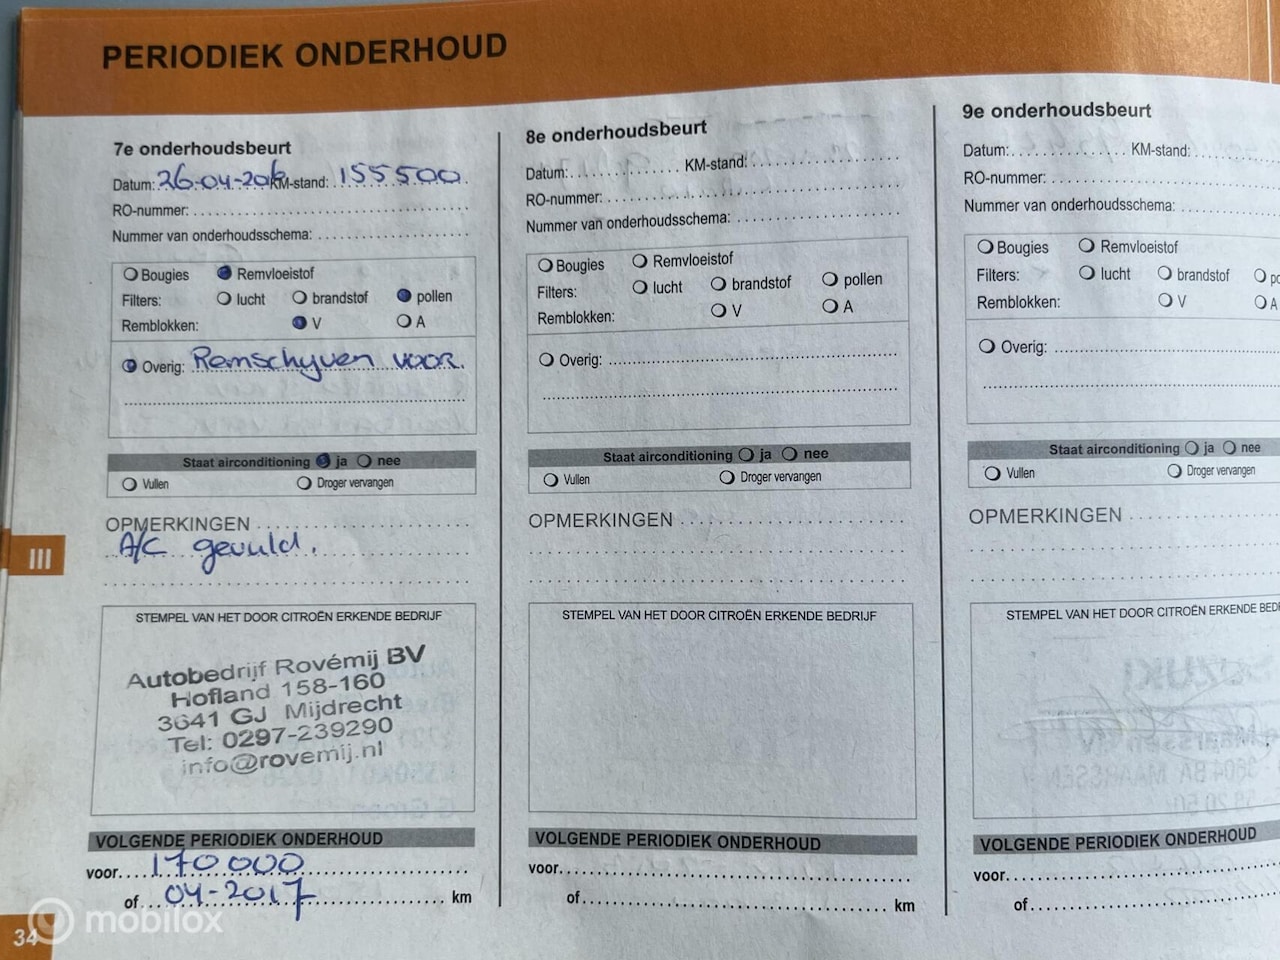 PERIODIEK ONDERHOUD
7e onderhoudsbeurt
Datum: 26-04-2016 KM-stand: 155500
RO-nummer:
Nummer van onderhoudsschema:
Bougies Remvloeistof
Filters: lucht brandstof pollen
Remblokken: V A
Overig: Remschyven voor.
Staat airconditioning ja nee
Vullen Droger vervangen
OPMERKINGEN
A/C gevuld.
STEMPEL VAN HET DOOR CITROËN ERKENDE BEDRIJF
Autobedrijf Rovémij BV
Hofland 158-160
3641 GJ Mijdrecht
Tel: 0297-239290
info@rovemij.nl
VOLGENDE PERIODIEK ONDERHOUD
voor 170.000
of 04-2017 km
8e onderhoudsbeurt
Datum: KM-stand:
RO-nummer:
Nummer van onderhoudsschema:
Bougies Remvloeistof
Filters: lucht brandstof pollen
Remblokken: V A
Overig:
Staat airconditioning ja nee
Vullen Droger vervangen
OPMERKINGEN
STEMPEL VAN HET DOOR CITROËN ERKENDE BEDRIJF
VOLGENDE PERIODIEK ONDERHOUD
voor
of km
9e onderhoudsbeurt
Datum: KM-stand:
RO-nummer:
Nummer van onderhoudsschema:
Bougies Remvloeistof
Filters: lucht brandstof
Remblokken: V A
Overig:
Staat airconditioning ja nee
Vullen Droger vervangen
OPMERKINGEN
STEMPEL VAN HET DOOR CITROËN ERKENDE
VOLGENDE PERIODIEK ONDERHOUD
voor
of
III
34
mobilox